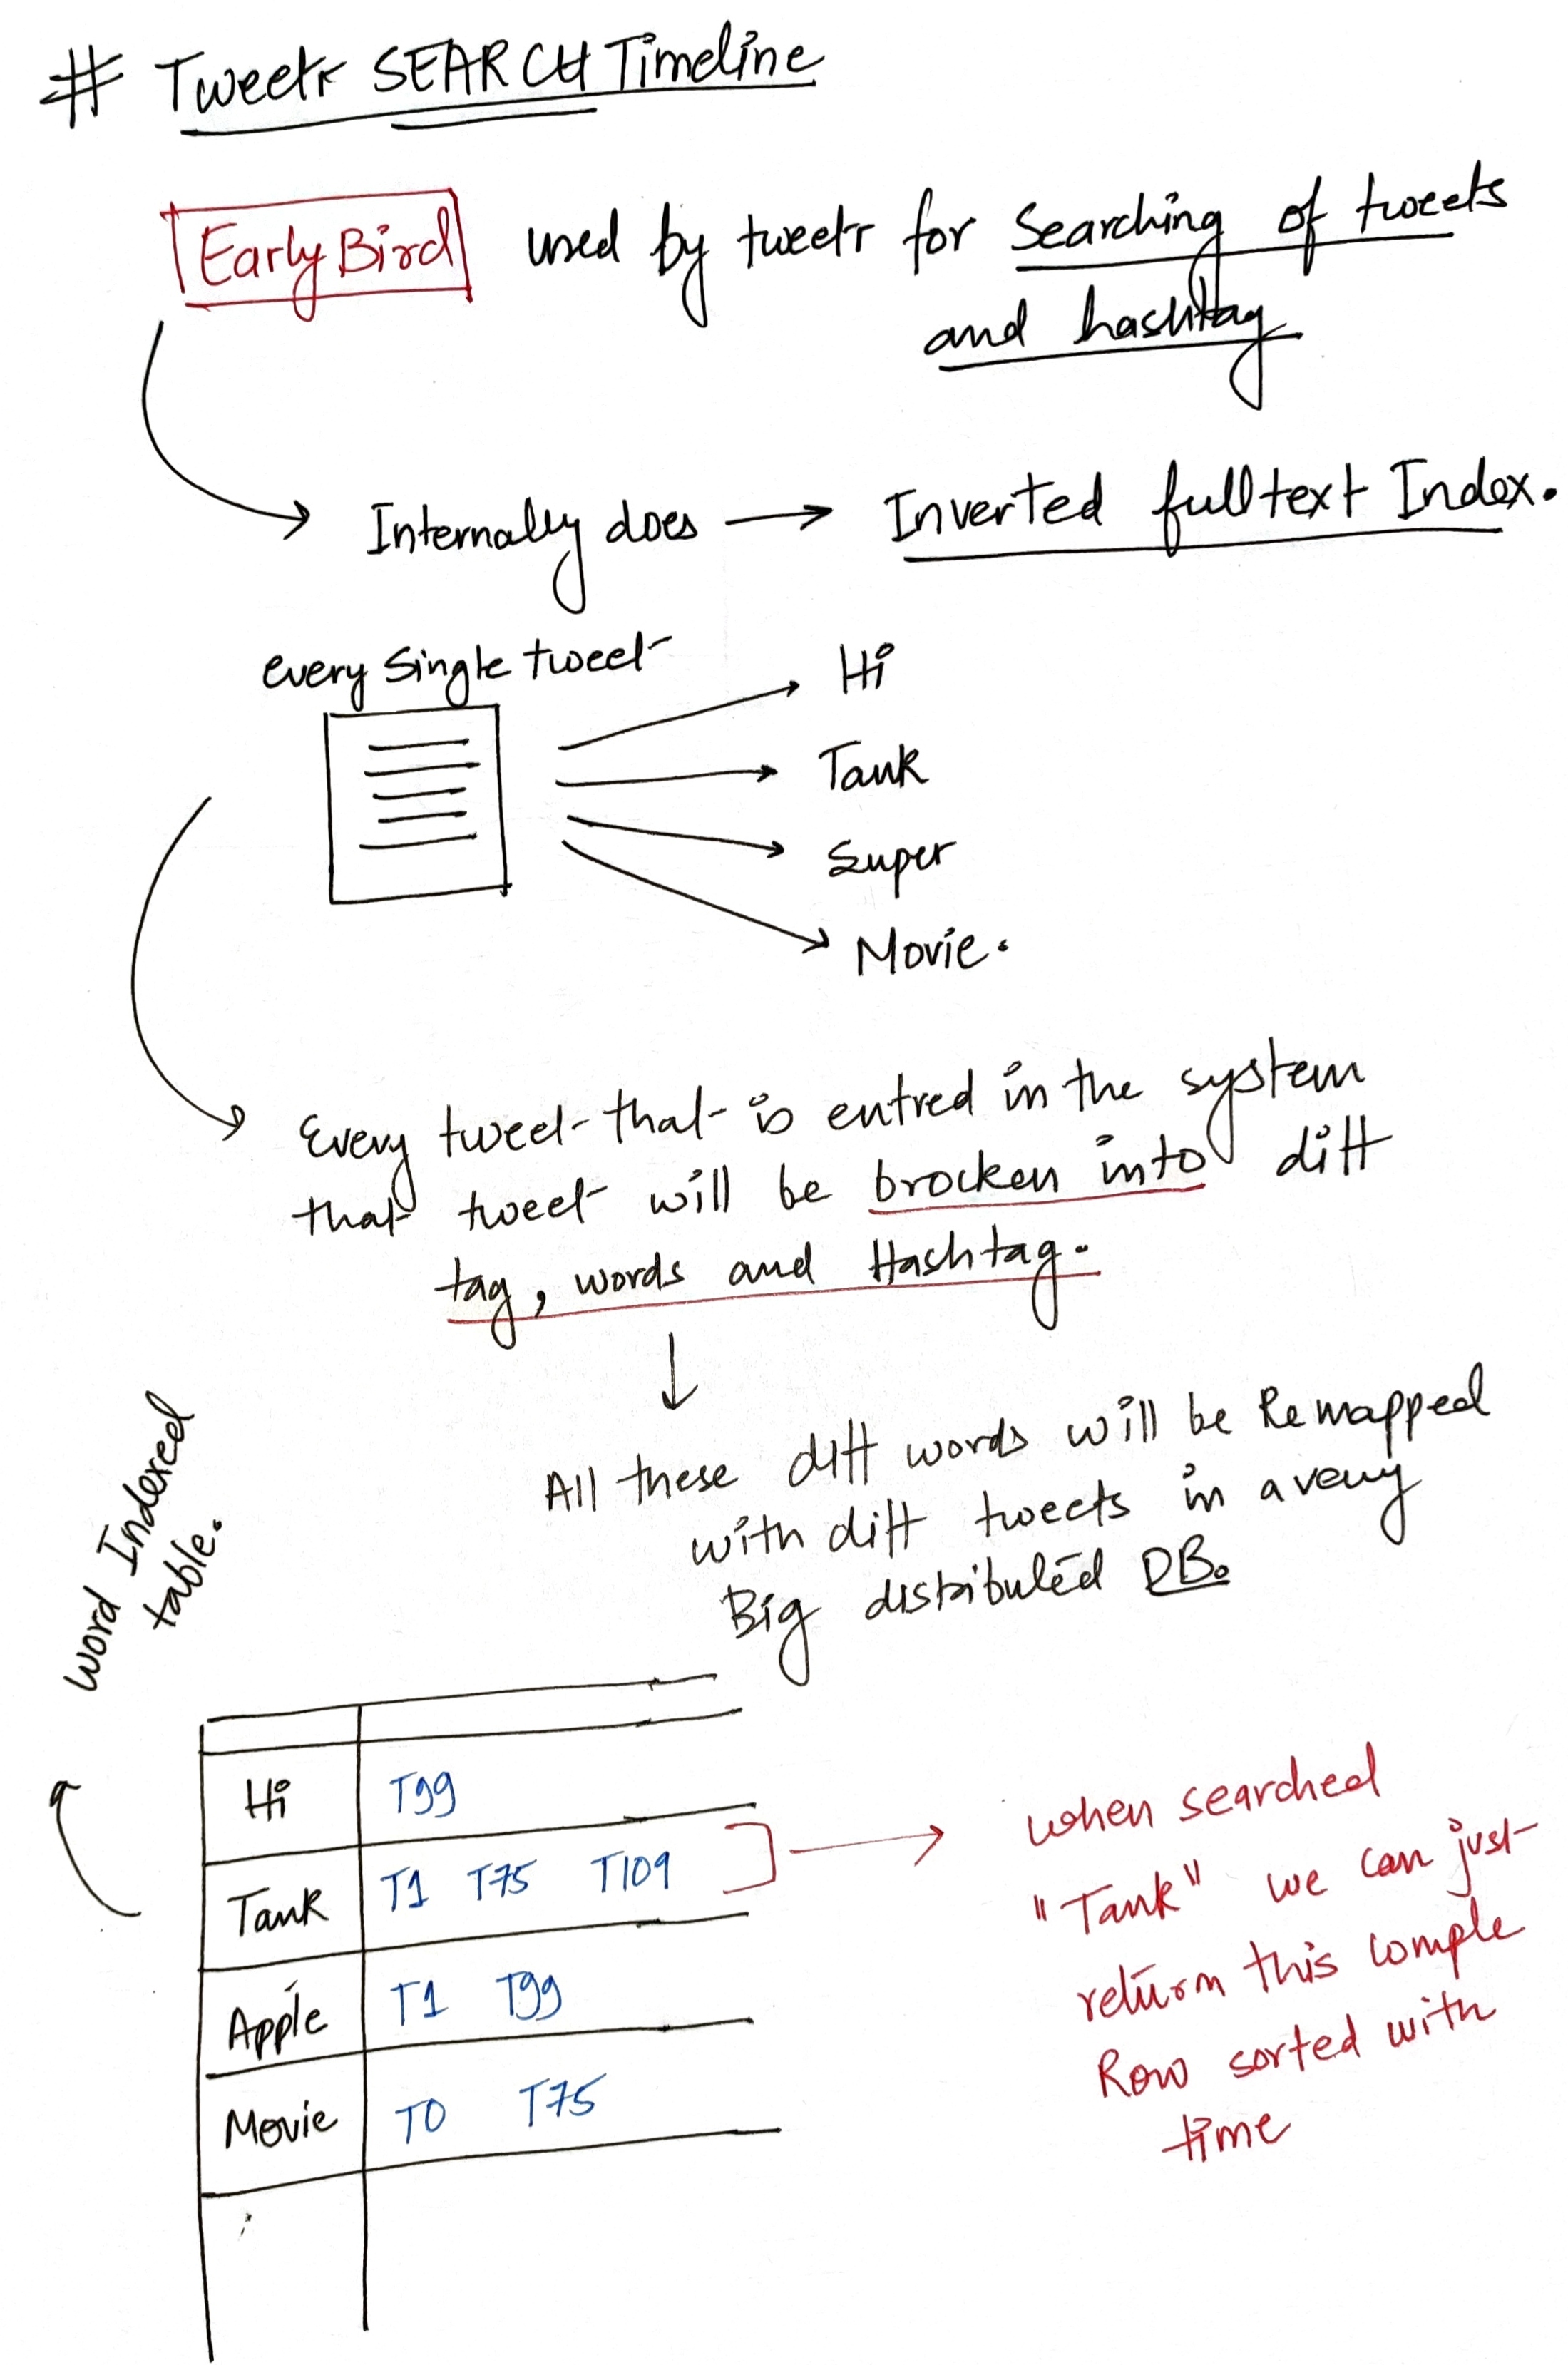 # Tweetr SEARCH Timeline
Early Bird used by tweetr for Searching of tweets
and hashtag
Internally does → Inverted full text Index.
every Single tweet
Hi
Tank
Super
Movie.
Every tweet that is entred in the system
that tweet will be brocken into diff
tag, words and Hashtag.
All these diff words will be Remapped
with diff tweets in a very
Big distributed DB.
word Indexed
table.
Hi T99
Tank T1 T75 T109
Apple T1 T99
Movie T0 T75
when searched
"Tank" we can just
return this comple
Row sorted with
time